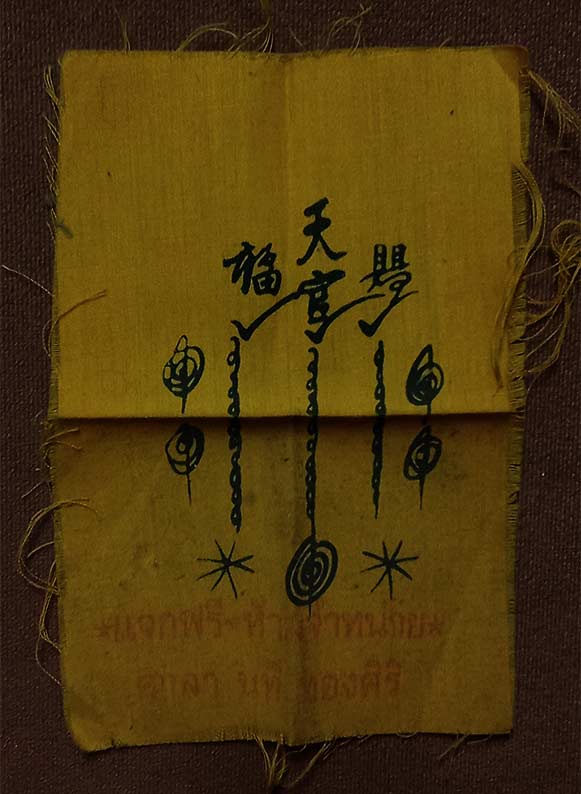 天官賜福
*แจกฟรี-ห้ามจำหน่าย*
ศาลา นที ทองศิริ